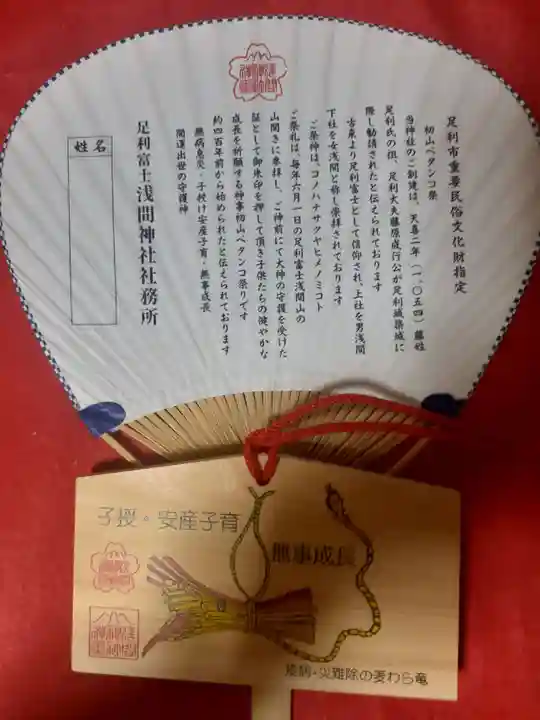 足利市重要民俗文化財指定
初山ペタンコ祭
当神社のご創建は、天喜二年(一、〇五四)藤姓
足利氏の祖、足利大夫藤原成行公が足利城築城に
際し勧請されたと伝えられております
古来より足利富士として信仰され、上社を男浅間
下社を女浅間と称し崇拝されております
ご祭神は、コノハナサクヤヒメノミコト
ご祭礼は、毎年六月一日の足利富士浅間山の
山開きに来拝し、ご神前にて大神の守護を受けた
証として御朱印を押して頂き子供たちの健やかな
成長を祈願する神事初山ペタンコ祭りです
約四百年前から始められたと伝えられております
無病息災・子授け安産子育・無事成長
開運出世の守護神
足利富士浅間神社社務所
姓名
子授・安産子育
無事成長
疫病・火難除の麦わら竜